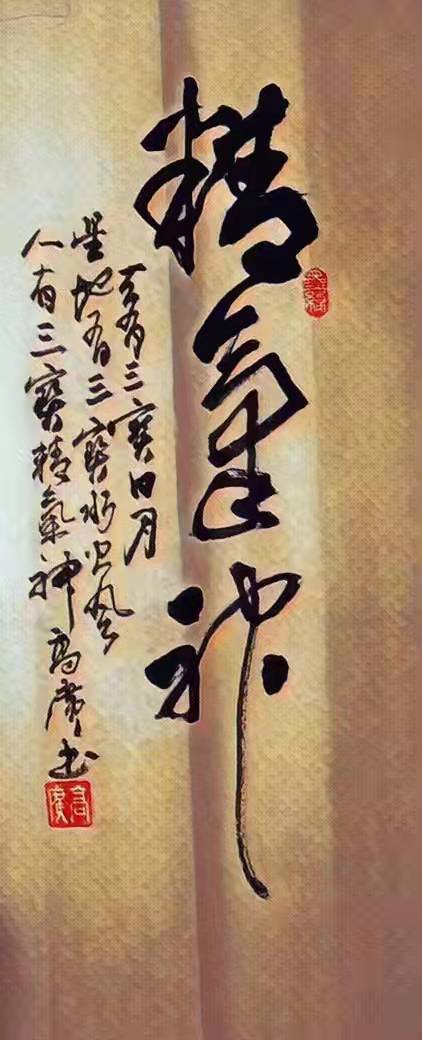 精氣神
天有三寶日月
星地有三寶水火風
人有三寶精氣神
高 书